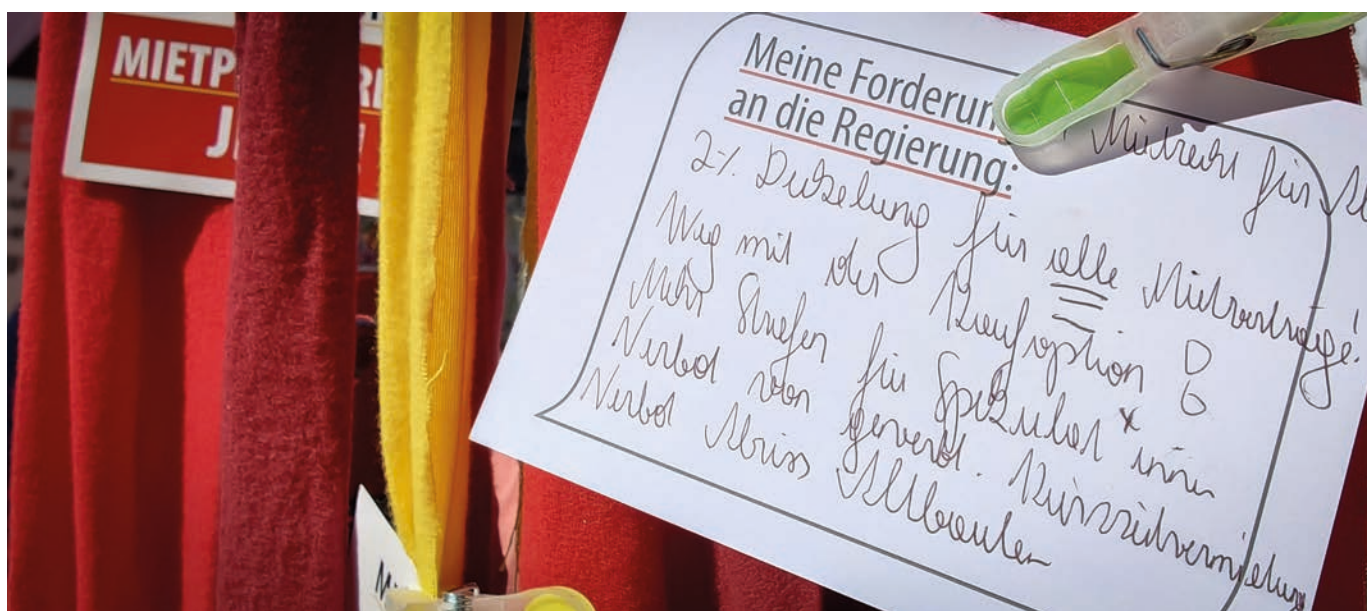 MIETP
J
Meine Forderung
an die Regierung:
Mietrecht für
2% Deckelung für alle Mietverträge!
Weg mit der Kaufoption
Mehr Strafen für Spekulat*innen
Verbot von gewerbl. Kurzzeitvermietung
Verbot Abriss Altbauten